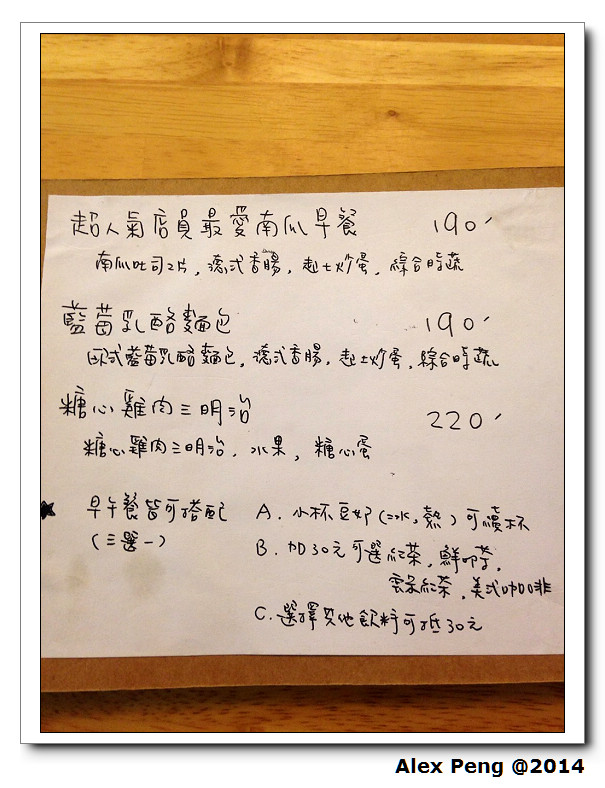 超人氣店員最愛南瓜早餐 190
南瓜吐司2片，德式香腸，起士炒蛋，綜合時蔬
藍莓乳酪麵包 190
歐式藍莓乳酪麵包，德式香腸，起士炒蛋，綜合時蔬
糖心雞肉三明治 220
糖心雞肉三明治，水果，糖心蛋
★ 早午餐皆可搭配
(三選一)
A. 小杯豆奶(冰,熱)可續杯
B. 加30元可選紅茶，鮮奶茶，
雲朵紅茶，美式咖啡
C. 選擇其他飲料可抵30元
Alex Peng @2014